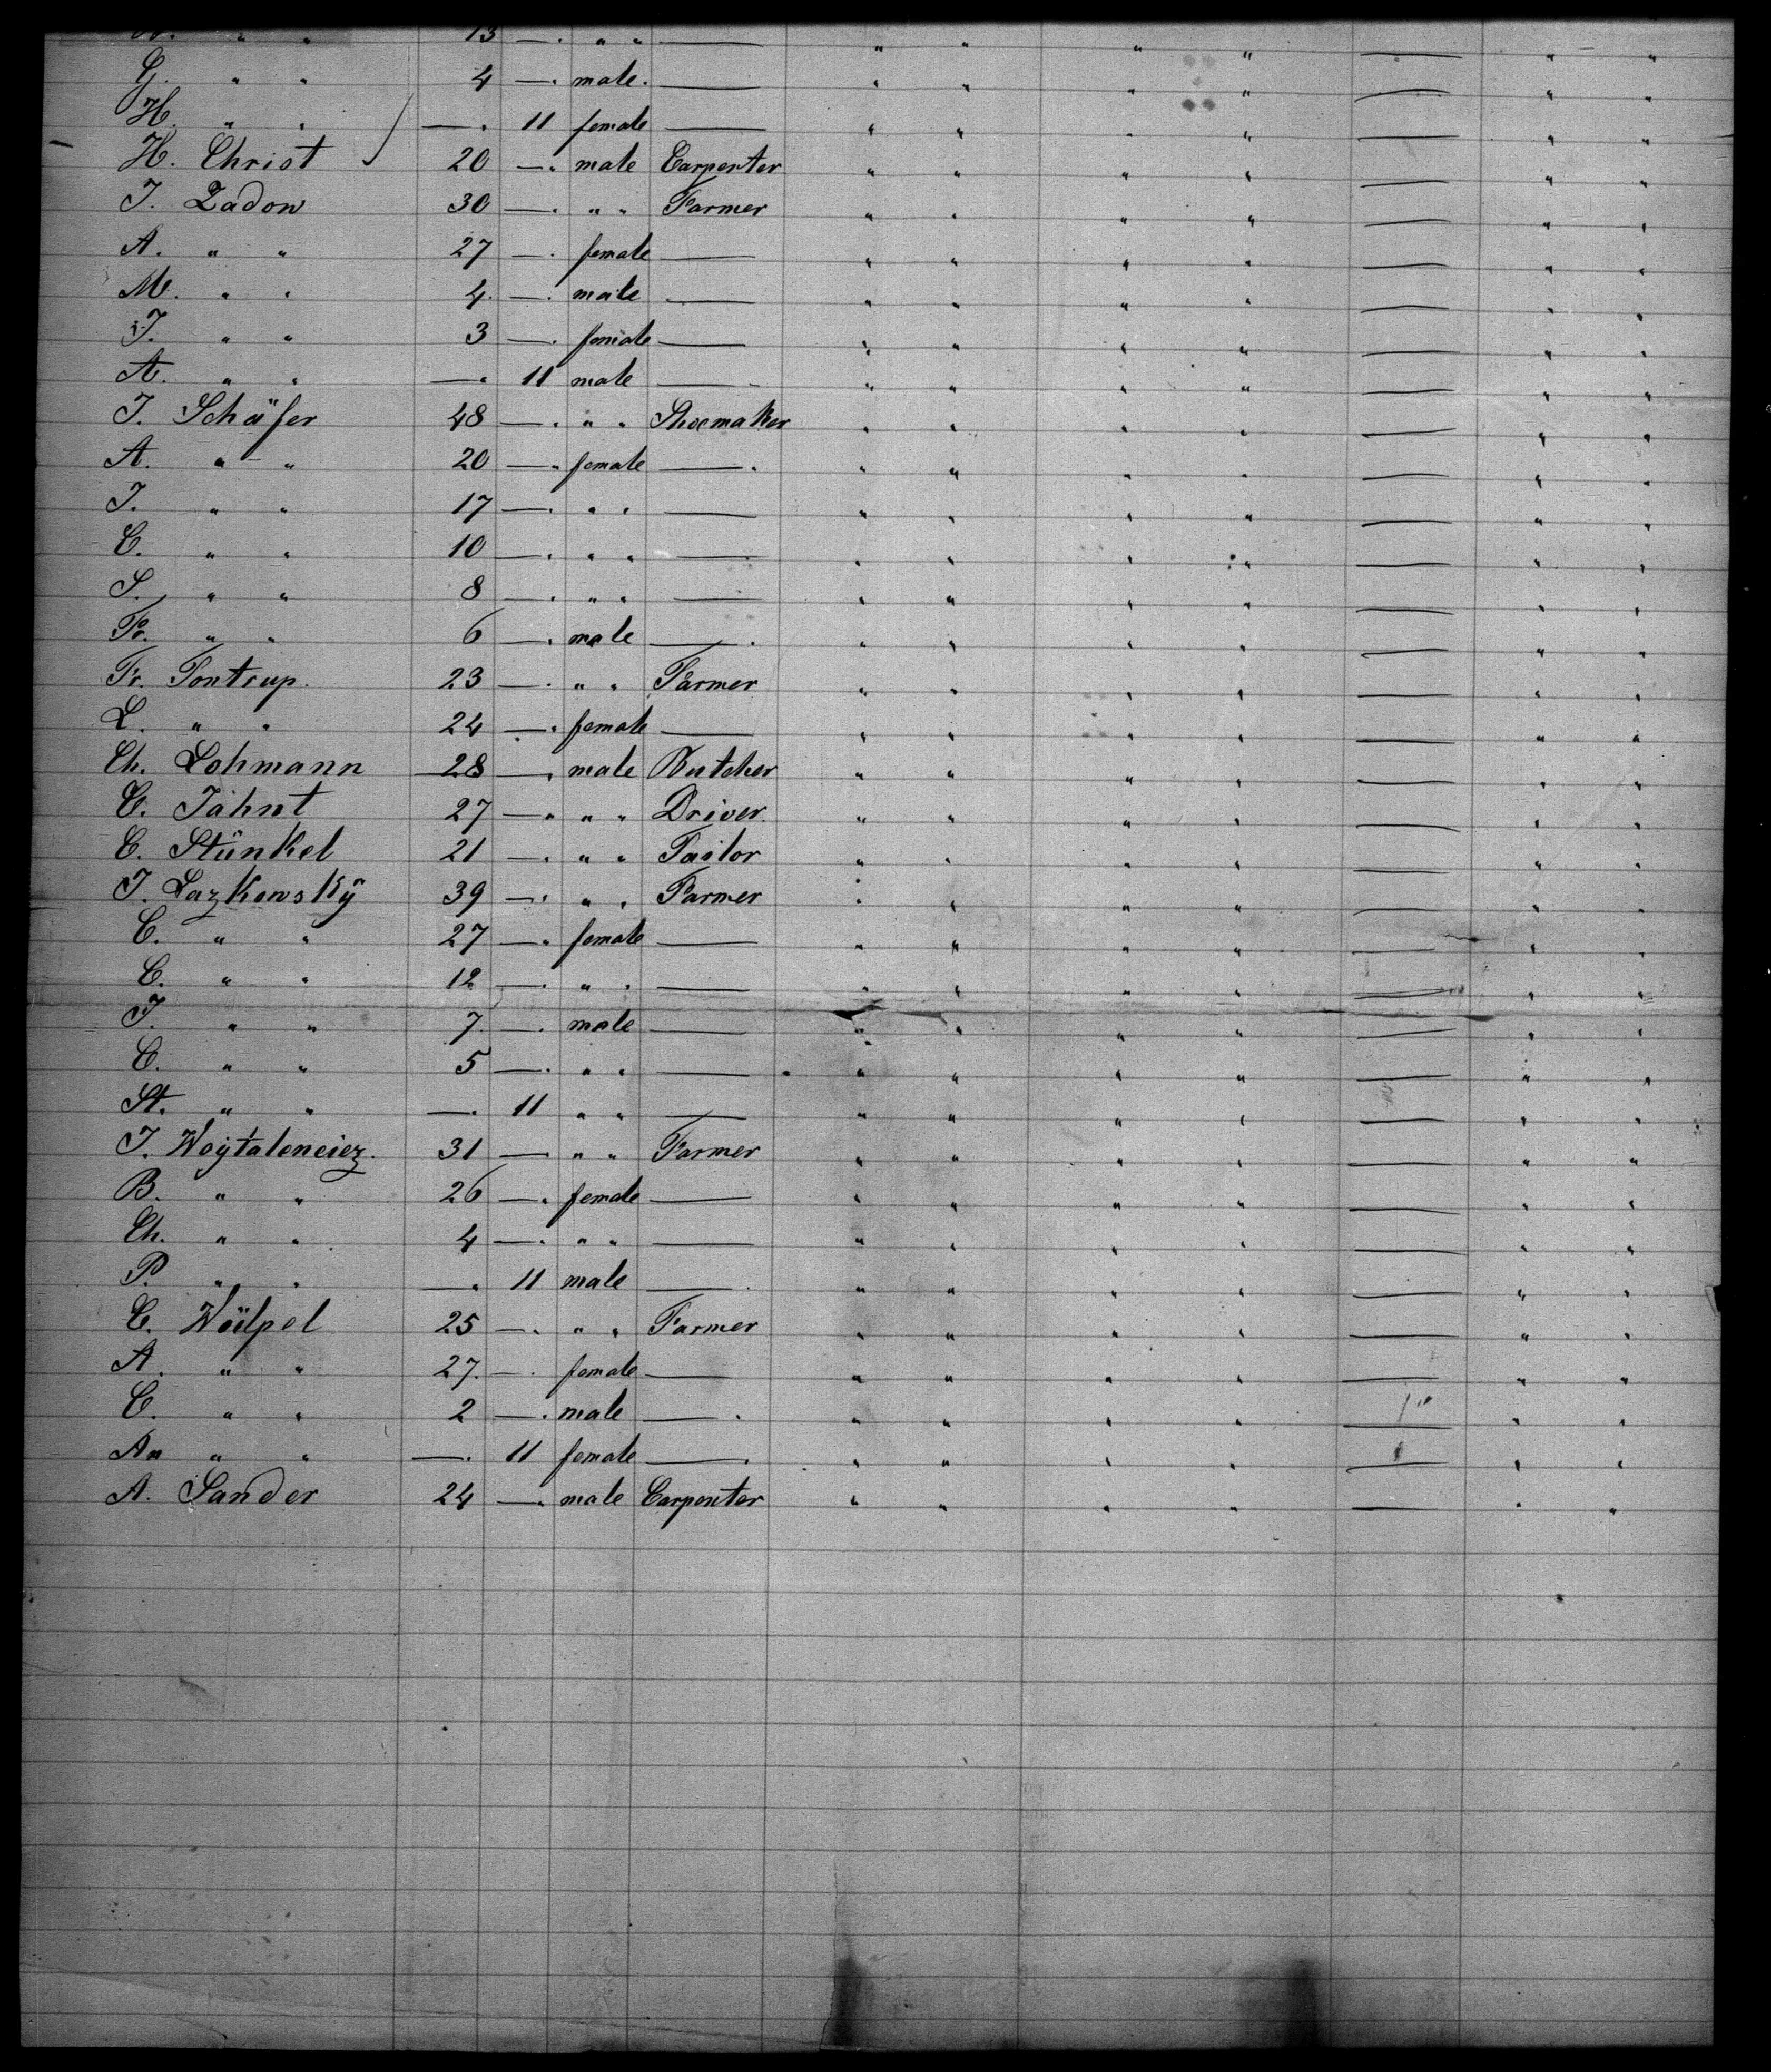 13 — " "
G. " " 4 — male. — " " " " — " "
H. " " — 11 female — " " " " — " "
H. Christ 20 — male Carpenter " " " " — " "
J. Zadow 30 — " " Farmer " " " " — " "
A. " " 27 — female — " " " " — " "
M. " " 4 — male — " " " " — " "
J. " " 3 — female — " " " " — " "
A. " " — 11 male — " " " " — " "
J. Schäfer 48 — " " Shoemaker " " " " — " "
A. " " 20 — female — " " " " — " "
J. " " 17 — " " — " " " " — " "
C. " " 10 — " " — " " " " — " "
S. " " 8 — " " — " " " " — " "
Fr. " " 6 — male — " " " " — " "
Fr. Pontrup. 23 — " " Farmer " " " " — " "
L. " " 24 — female — " " " " — " "
Ch. Lohmann 28 — male Butcher " " " " — " "
C. Jahnt 27 — " " Driver. " " " " — " "
C. Stünkel 21 — " " Tailor " " " " — " "
J. Lazkowskÿ 39 — " " Farmer " " " " — " "
C. " " 27 — female — " " " " — " "
C. " " 12 — " " — " " " " — " "
J. " " 7 — male — " " " " — " "
C. " " 5 — " " — " " " " — " "
St. " " — 11 " " — " " " " — " "
J. Woytaleneiez. 31 — " " Farmer " " " " — " "
B. " " 26 — female — " " " " — " "
Ch. " " 4 — " " — " " " " — " "
P. " " — 11 male — " " " " — " "
C. Wölpel 25 — " " Farmer " " " " — " "
A. " " 27. — female — " " " " — " "
C. " " 2 — male — " " " " — " "
An " " — 11 female — " " " " — " "
A. Sander 24 — male Carpenter " " " " — " "